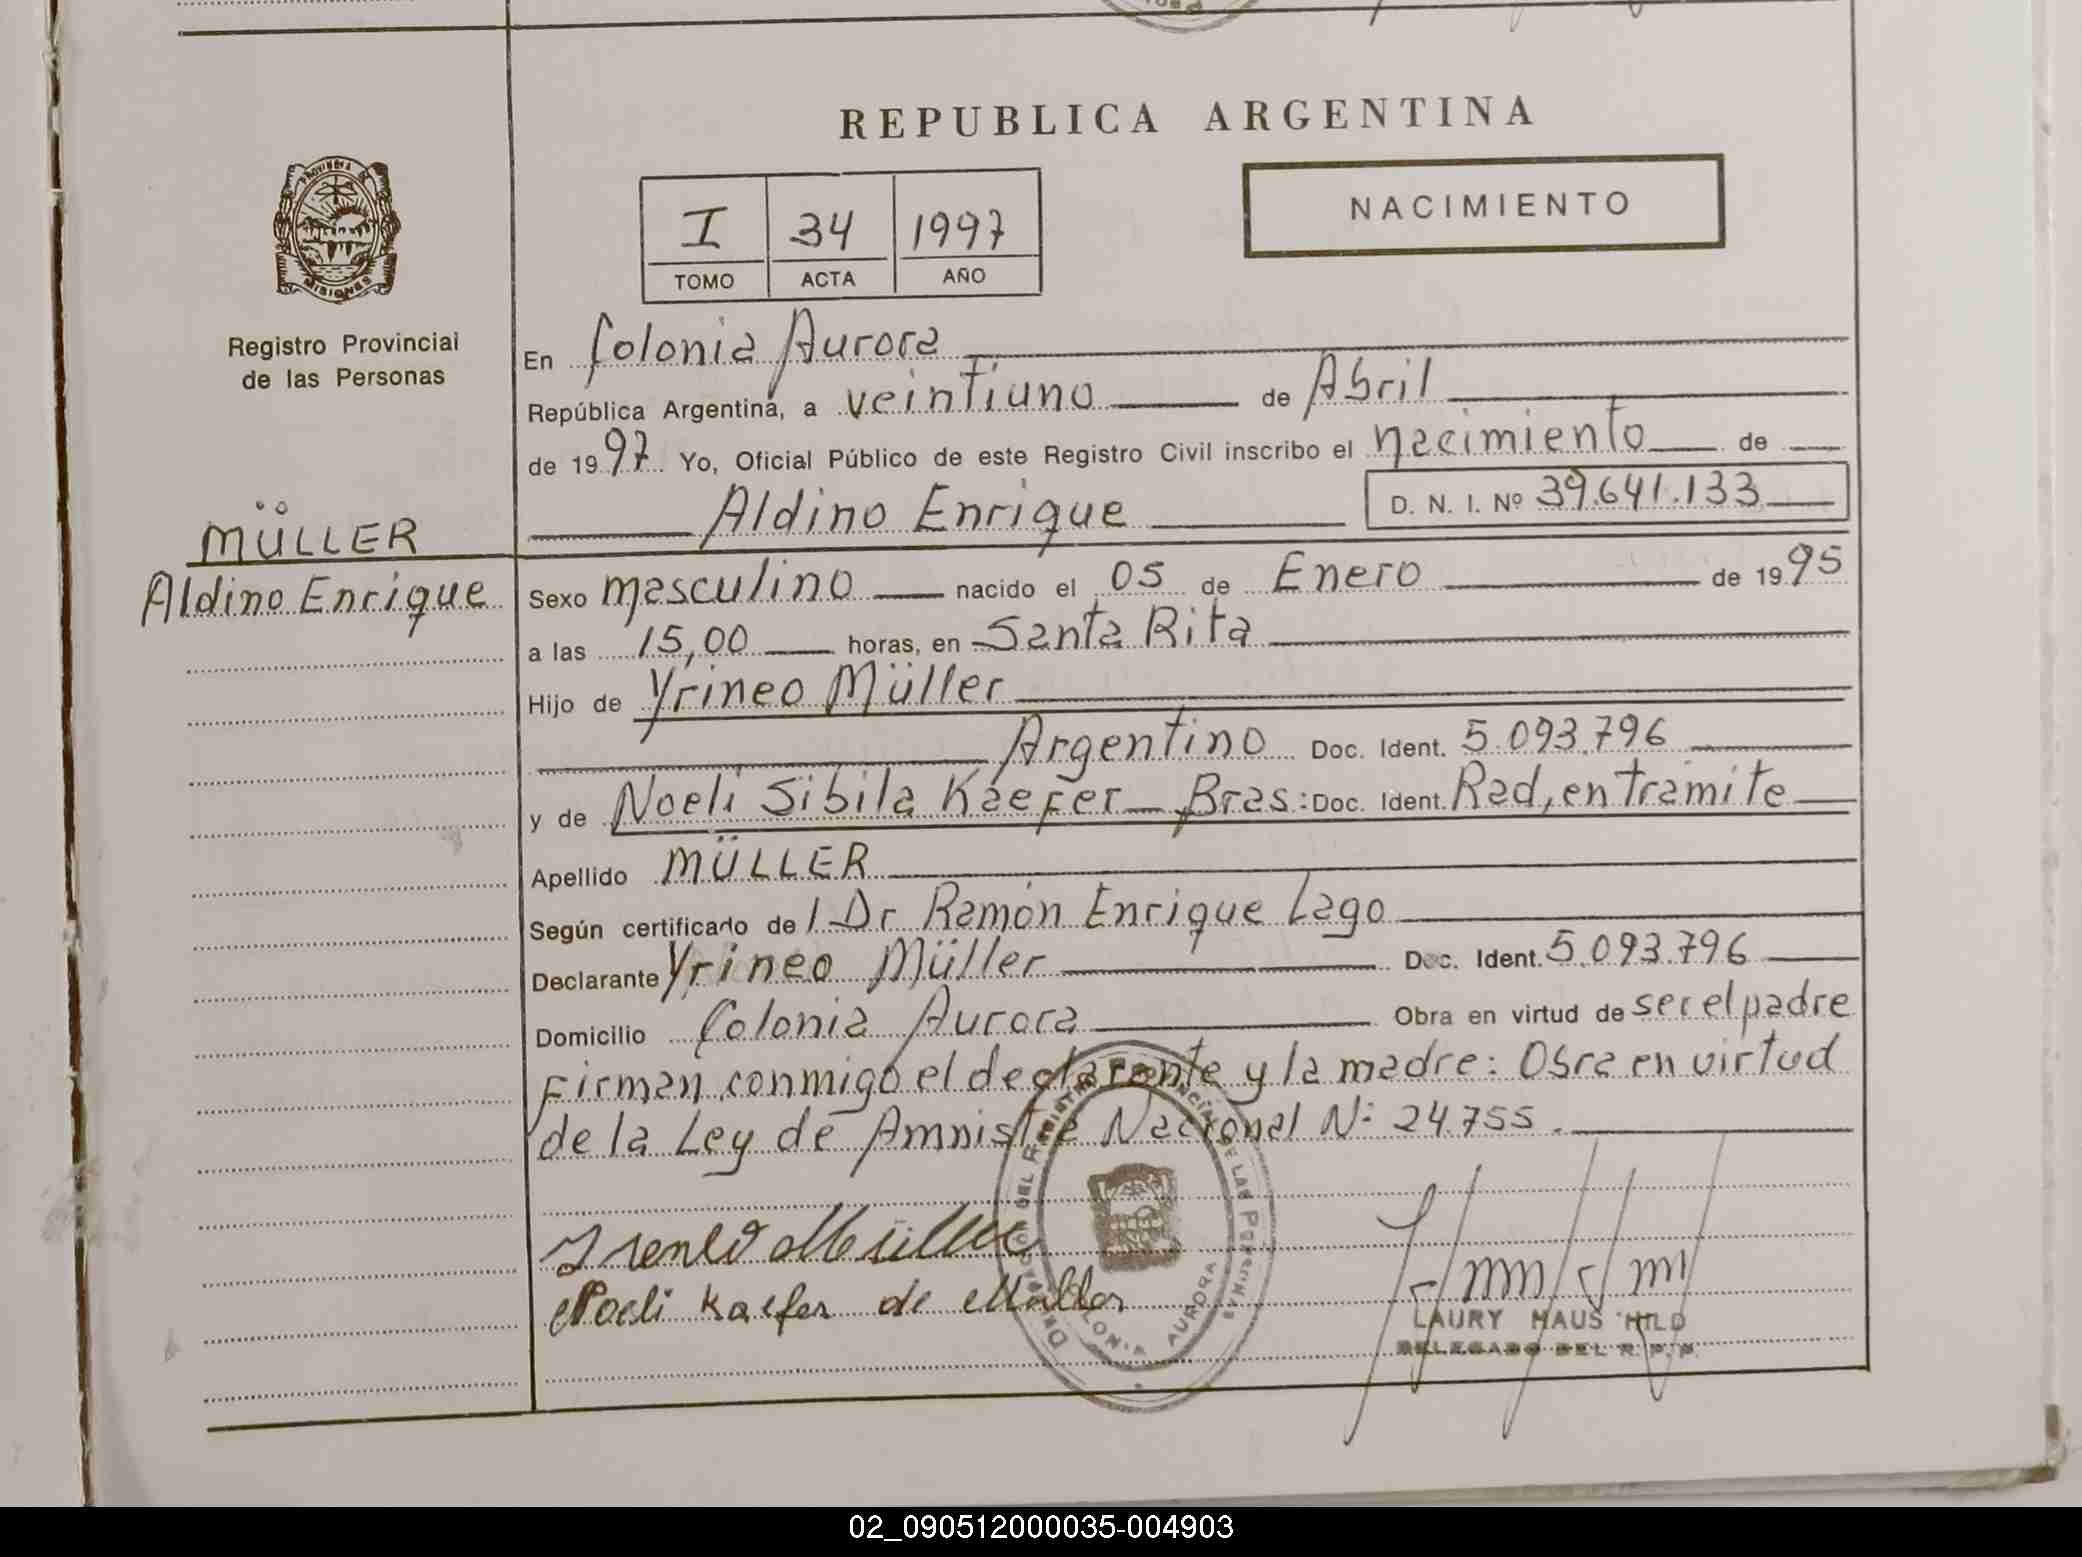 REPUBLICA ARGENTINA
PROVINCIA
MISIONES
Registro Provincial
de las Personas
I 34 1997
TOMO ACTA AÑO
NACIMIENTO
En Colonia Aurora
República Argentina, a veintiuno de Abril
de 1997 Yo, Oficial Público de este Registro Civil inscribo el nacimiento de
Aldino Enrique D. N. I. Nº 39.641.133
MÜLLER
Aldino Enrique
Sexo masculino nacido el 05 de Enero de 1995
a las 15,00 horas, en Santa Rita
Hijo de Yrineo Müller
Argentino Doc. Ident. 5.093.796
y de Noeli Sibila Kaefer Bras: Doc. Ident. Rad, en tramite
Apellido MÜLLER
Según certificado de l Dr Ramón Enrique Lago
Declarante Yrineo Müller Doc. Ident. 5.093.796
Domicilio Colonia Aurora Obra en virtud de ser el padre
Firman conmigo el declarante y la madre: Obra en virtud
de la Ley de Amnistia Nacional Nº 24.755.
DELEGACION DEL REGISTRO PROVINCIAL DE LAS PERSONAS
COLONIA AURORA
Ireneo Müller
Noeli Kaefer de Müller
LAURY HAUS HILD
DELEGADO DEL R. P. P.
02_090512000035-004903